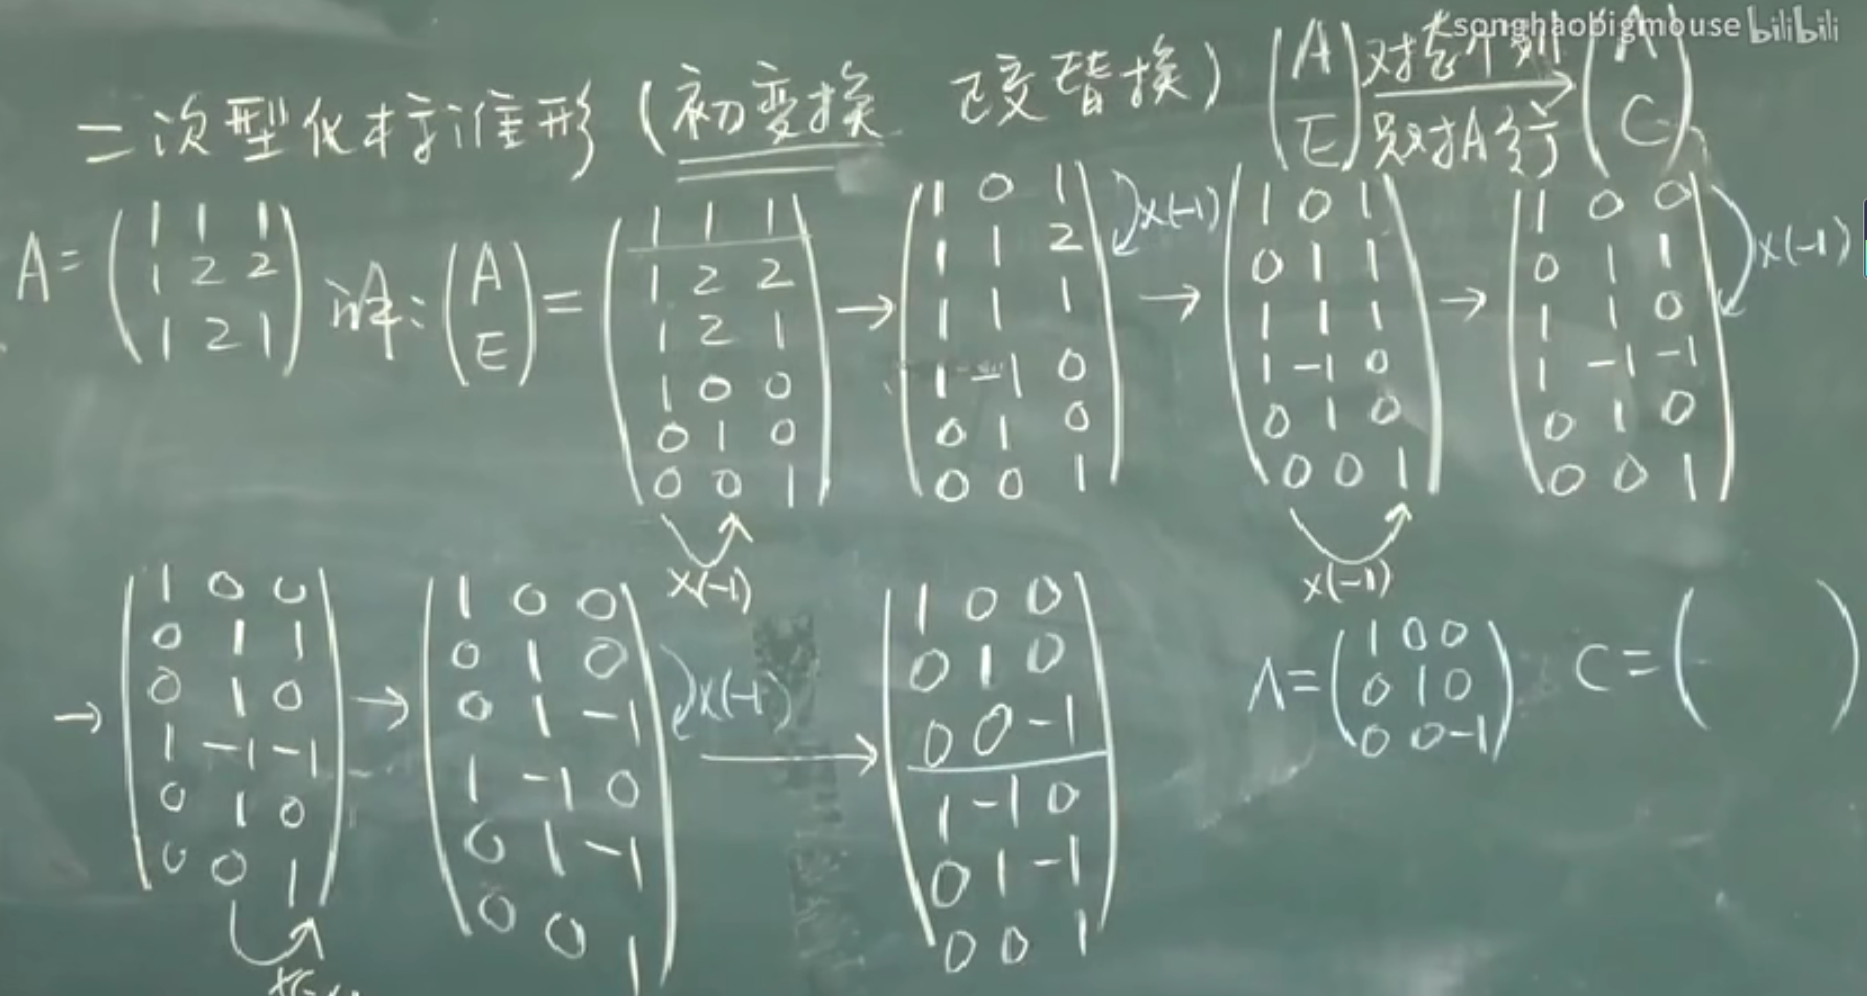 songhaobigmouse bilibili
二次型化标准形(初变换 改替换) (A E) 对整个列 只对A行 (Λ C)
A= (1 1 1
1 2 2
1 2 1)
解: (A E) =
(1 1 1
1 2 2
1 2 1
1 0 0
0 1 0
0 0 1)
x(-1)
→
(1 0 1
1 1 2
1 1 1
1 -1 0
0 1 0
0 0 1)
x(-1)
→
(1 0 1
0 1 1
1 1 1
1 -1 0
0 1 0
0 0 1)
x(-1)
→
(1 0 0
0 1 1
1 1 0
1 -1 -1
0 1 0
0 0 1)
x(-1)
→
(1 0 0
0 1 1
0 1 0
1 -1 -1
0 1 0
0 0 1)
→
(1 0 0
0 1 0
0 1 -1
1 -1 0
0 1 -1
0 0 1)
x(-1)
→
(1 0 0
0 1 0
0 0 -1
1 -1 0
0 1 -1
0 0 1)
Λ= (1 0 0
0 1 0
0 0 -1)
C= ( )